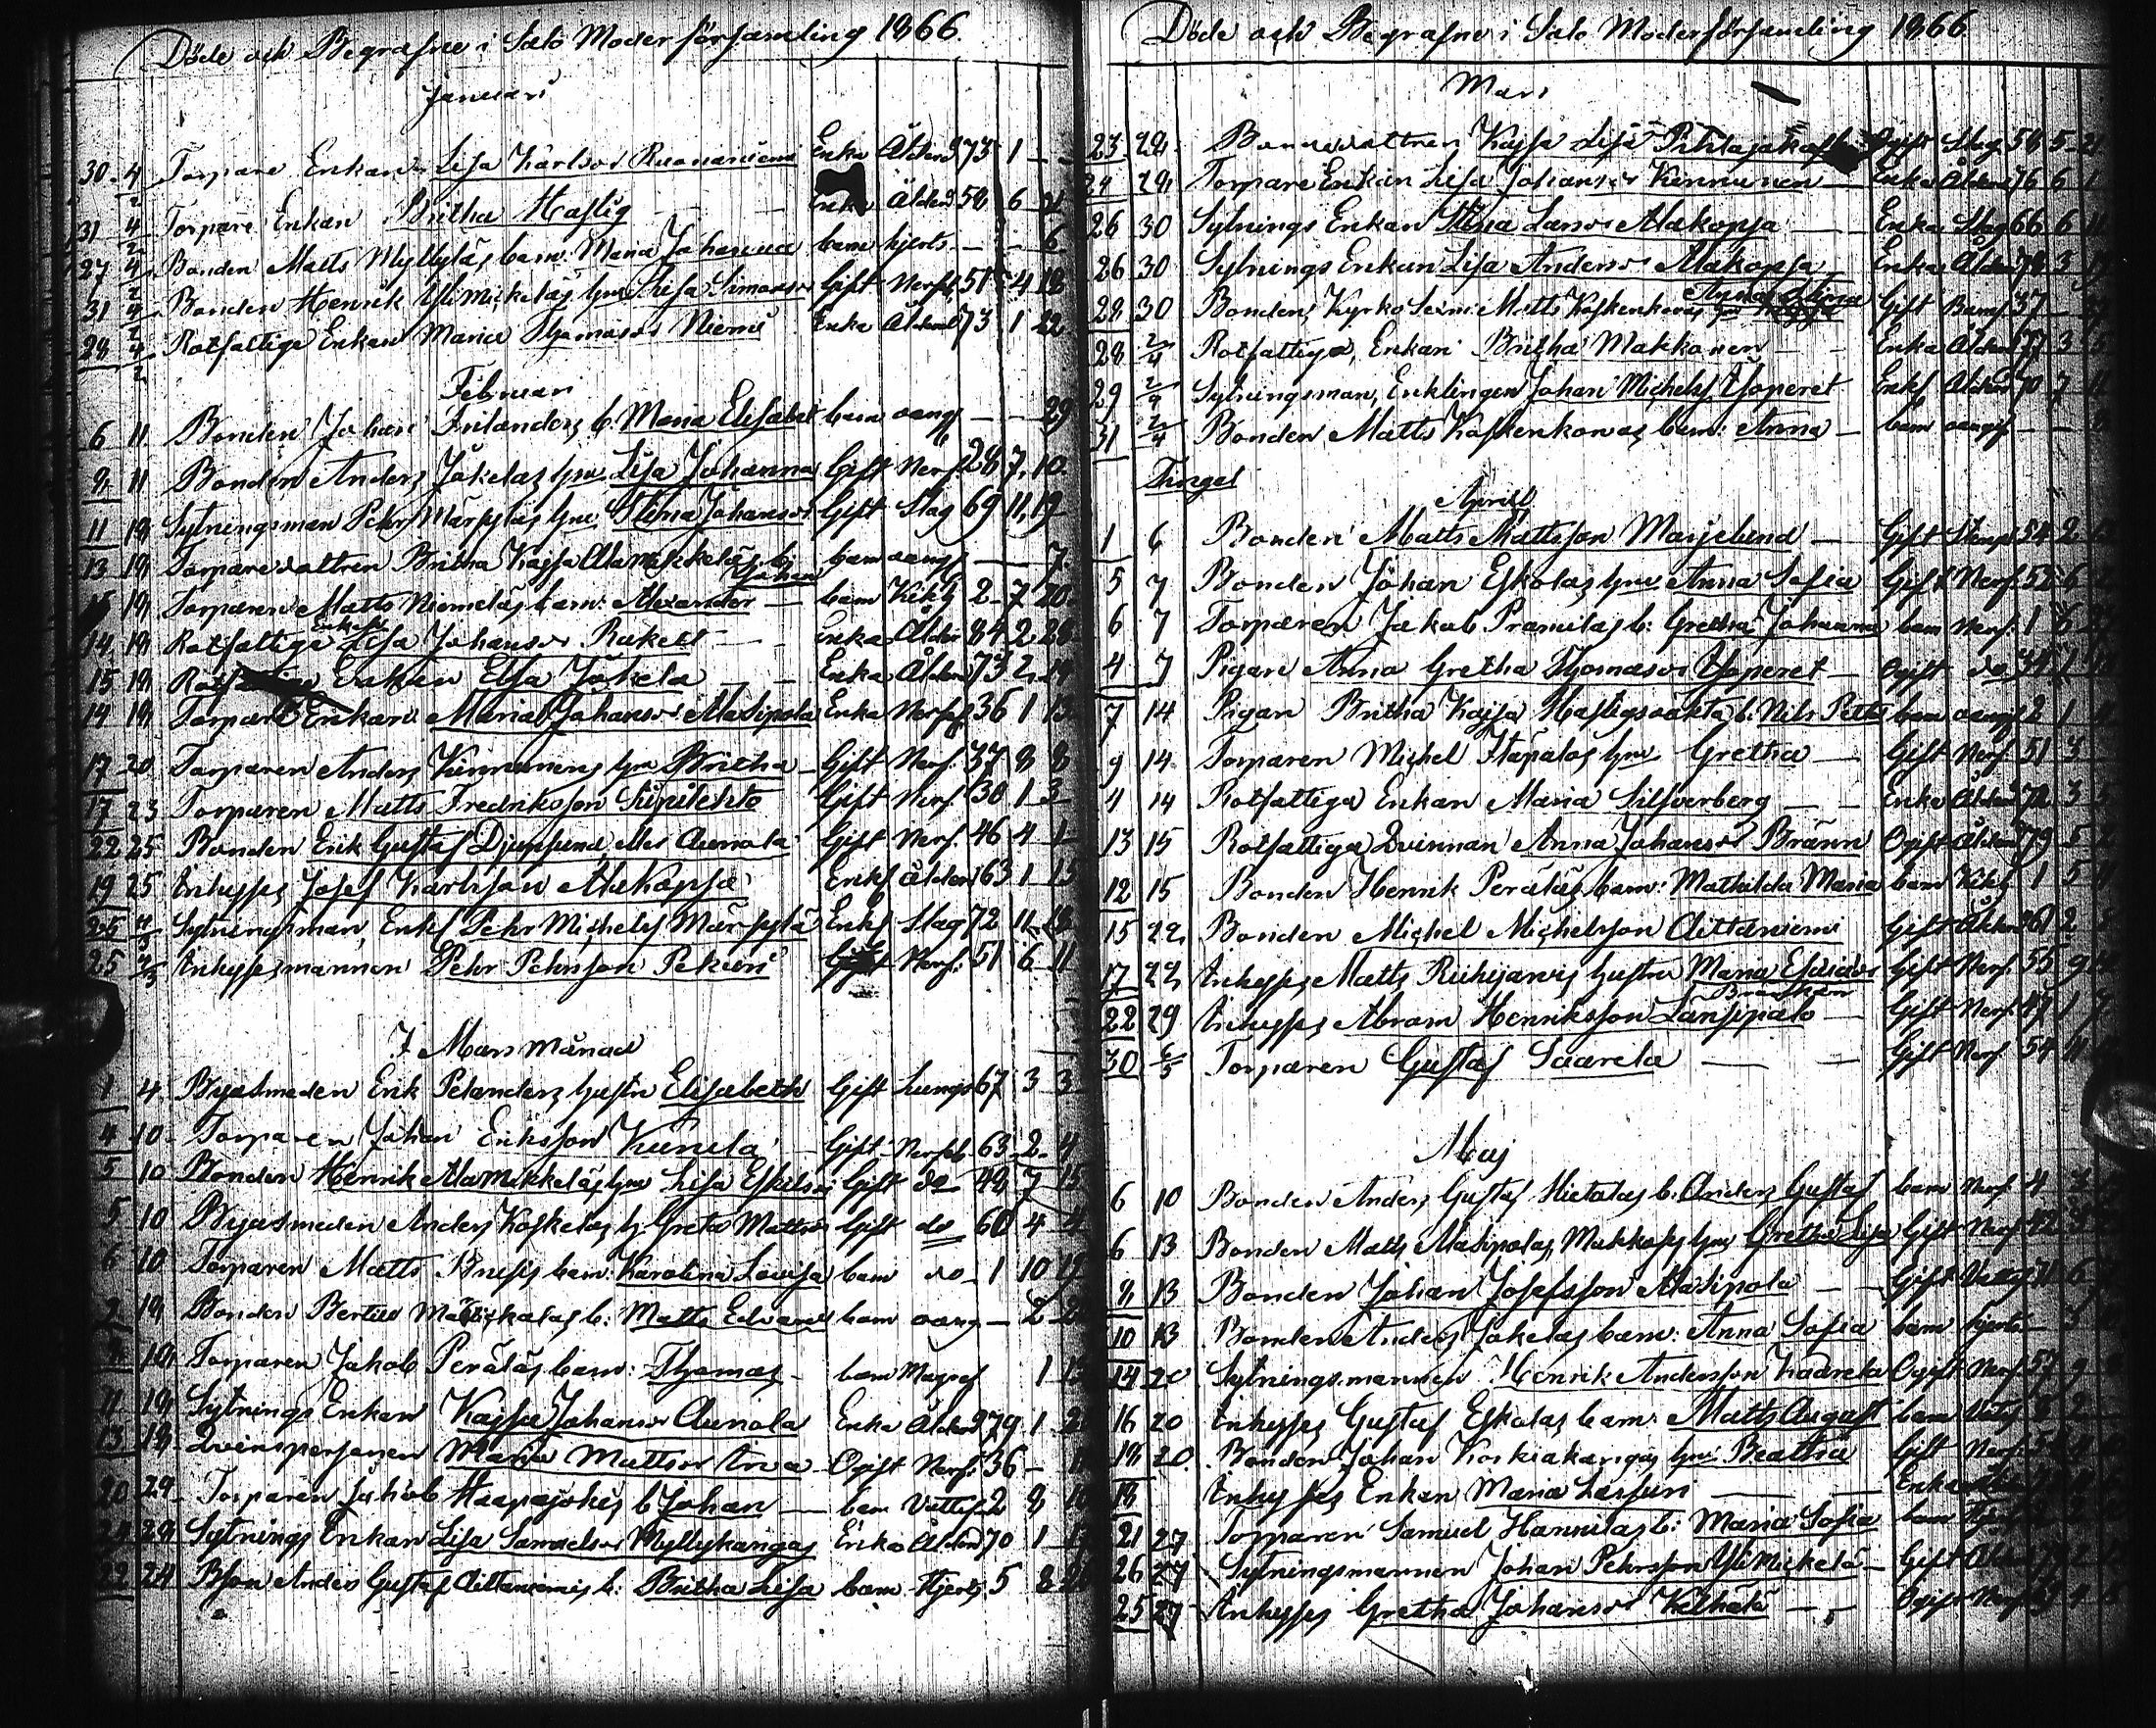 Döde och Begrafne i Salo Moderförsamling 1866.
Januari
30 4/2 Torpare Enkan Lisa Karlsdr Ruonaniemi Enka Ålderd 73 1
31 4/2 Torpare Enkan Britha Hastig Enka Ålderd 58 6 21
27 4/2 Bonden Matts Myllyläs barn: Maria Johanna barn hjerts - - 6
31 4/2 Bonden Henrik Yli Mickeläs hu Lisa Simonsdr Gift Nerff. 51 4 18
28 4/2 Rotfattiga Enkan Maria Thomasdr Niemi Enka Ålderd 73 1 22
Februari
6 11 Bonden Johan Frilanders b: Maria Elisabet barn oangf - - 29
9 11 Bonden Anders Jokelas hu Lisa Johanna Gift Nerf. 28 7 10
11 18 Sytningsman Pehr Märsyläs hu: Stina Johansdr Gift Slag 69 11 19
13 18 Torparedottren Britha Kajsa Ala Mikkeläs b: Johan barn oangf - - 7
18 Torparen Matts Niemeläs barn: Alexander barn Kikh 2 7 20
14 18 Rotfattige Enkan Lisa Johansdr Rukett Enka Ålder 84 2 28
15 18 Enkan Elsa Jokela Enka Ålderd 73 2 19
14 18 Torpare Enkan Maria Johansdr Alasipola Enka Nerff 36 1 13
17 20 Torparen Anders Kinnunens hu Britha Gift Nerf. 37 8 8
17 23 Torparen Matts Fredriksson Gift Nerf. 30 1 3
22 25 Bonden Erik Gustaf Djupsund Aunola Gift Nerf. 46 4 1
19 25 Inhyses Josef Karlsson Alakopsa Enkl Ålderd 63 1 15
25 4/3 Sytningsman, Enkl Pehr Michels Märsylä Enkl Slag 72 11 18
25 4/3 Inhysesmannen Pehr Pehrsson Pekuri Gift Nerf: 51 6 11
Mars månad
1 4 Byasmeden Erik Pelanders hustru Elisabeth Gift Lungs 67 3 3
4 10 Torparen Johan Eriksson Kunela Gift Nerff. 63 2 4
5 10 Bonden Henrik Ala Mikkeläs hu Lisa Eskilsdr Gift do 48 7 15
5 10 Byasmeden Anders Koskelas h: Greta Mattsdr Gift do 60 4 4
6 10 Torparen Matts barn: Karolina Lovisa barn do 1 10 19
2 18 Bonden Bertils b: Matts Edvard barn oang - 2
18 Torparen Jakob Peräläs barn: Thomas barn Magref 1
11 18 Sytnings Enkan Kajsa Johansdr Aunola Enka Ålderd 79 1
13 18 Qvinspersonen Maria Mattsdr Ogift Nerf. 36
20 24 Torparen Jakob Haapajokis b Johan barn Vattus 2 8
28 Sytnings Enkan Lisa Samuelsdr Myllykangas Enka Ålderd 70 1
22 24 Bson Anders Gustaf Aittaniemis b: Britha Lisa barn Hjerts 5 8
Döde och Begrafne i Salo Moderförsamling 1866
Mars
23 28 Bondedottren Kajsa Lisa Pihlajakoski Ogift Slag 58 5 2
24 28 Torpare Enkan Lisa Johansdr Kinnunen Enka Ålderd 76 6 1
26 30 Sytnings Enkan Stina Larsdr Alakopsa Enka Slag 66 6 11
26 30 Sytnings Enkan Lisa Andersdr Alakopsa Enka Ålder 78 3
28 30 Bonden, Kyrko Matts Koskenkorvas hu Anna Stina Gift Barns 37
28 2/4 Rotfattiga, Enkan Britha Makkonen Enka Ålderd 77 3
29 2/4 Sytningsman, Enklingen Johan Michels Yoperet Enkl Ålderd 70 7
31 2/4 Bonden Matts Koskenkorvas barn: Anna barn oangf
April
1 6 Bonden Matts Mattsson Marjelund Gift 54 2
5 7 Bonden Johan Eskolas hu Anna Sofia Gift Nerf. 52 6
6 7 Torparen Jakob Pramilas b: Gretha Johanna barn Nerf. 1 6
4 7 Pigan Anna Gretha Thomasdr Yoperet Ogift do 34 1
7 14 Pigan Britha Kajsa Hastigs oäkta b: Nils Petter barn oangif 2 1
9 14 Torparen Michel Itäpalos hu Gretha Gift Nerf. 51 3
4 14 Rotfattiga Enkan Maria Silfverberg Enka Ålderd 72 3
13 15 Rotfattiga Qvinnan Anna Johansdr Bränn Ogift Ålderd 79 5
12 15 Bonden Henrik Peräläs barn: Mathilda Maria barn Kikh 1 5
15 22 Bonden Michel Michelsson Aittaniemi Gift Ålderd 61 2
17 22 Inhyses Matts Ruhijärvis hustru Maria Esaiasdr Gift Nerf. 55 9
22 29 Inhyses Abram Henriksson Länsipalo Gift Nerf. 47 1
30 6/5 Torparen Gustaf Saarela Gift Nerf. 54 11
Maj
6 10 Bonden Anders Gustaf Hietalas b: Anders Gustaf barn Nerf. 4
6 13 Bonden Matts Alasipolas, hu Gretha Lisa Gift Nerf. 42
8 13 Bonden Johan Josefsson Alasipola Gift
10 13 Bonden Anders Jokelas barn: Anna Sofia barn hjerts
14 20 Sytningsmannen Henrik Andersson Kaarela Ogift Nerf. 57 9
16 20 Inhyses Gustaf Eskolas barn: Matts August barn
18 20 Bonden Johan Koskiakangas hu: Beatha Gift Nerf.
18 Inhyses Enkan Maria Enka
21 27 Torparen Samuel Hannilas b: Maria Sofia barn
26 27 Sytningsmannen Johan Pehrsson Yli Mickelä Gift
25 27 Inhyses Gretha Johansdr Ogift